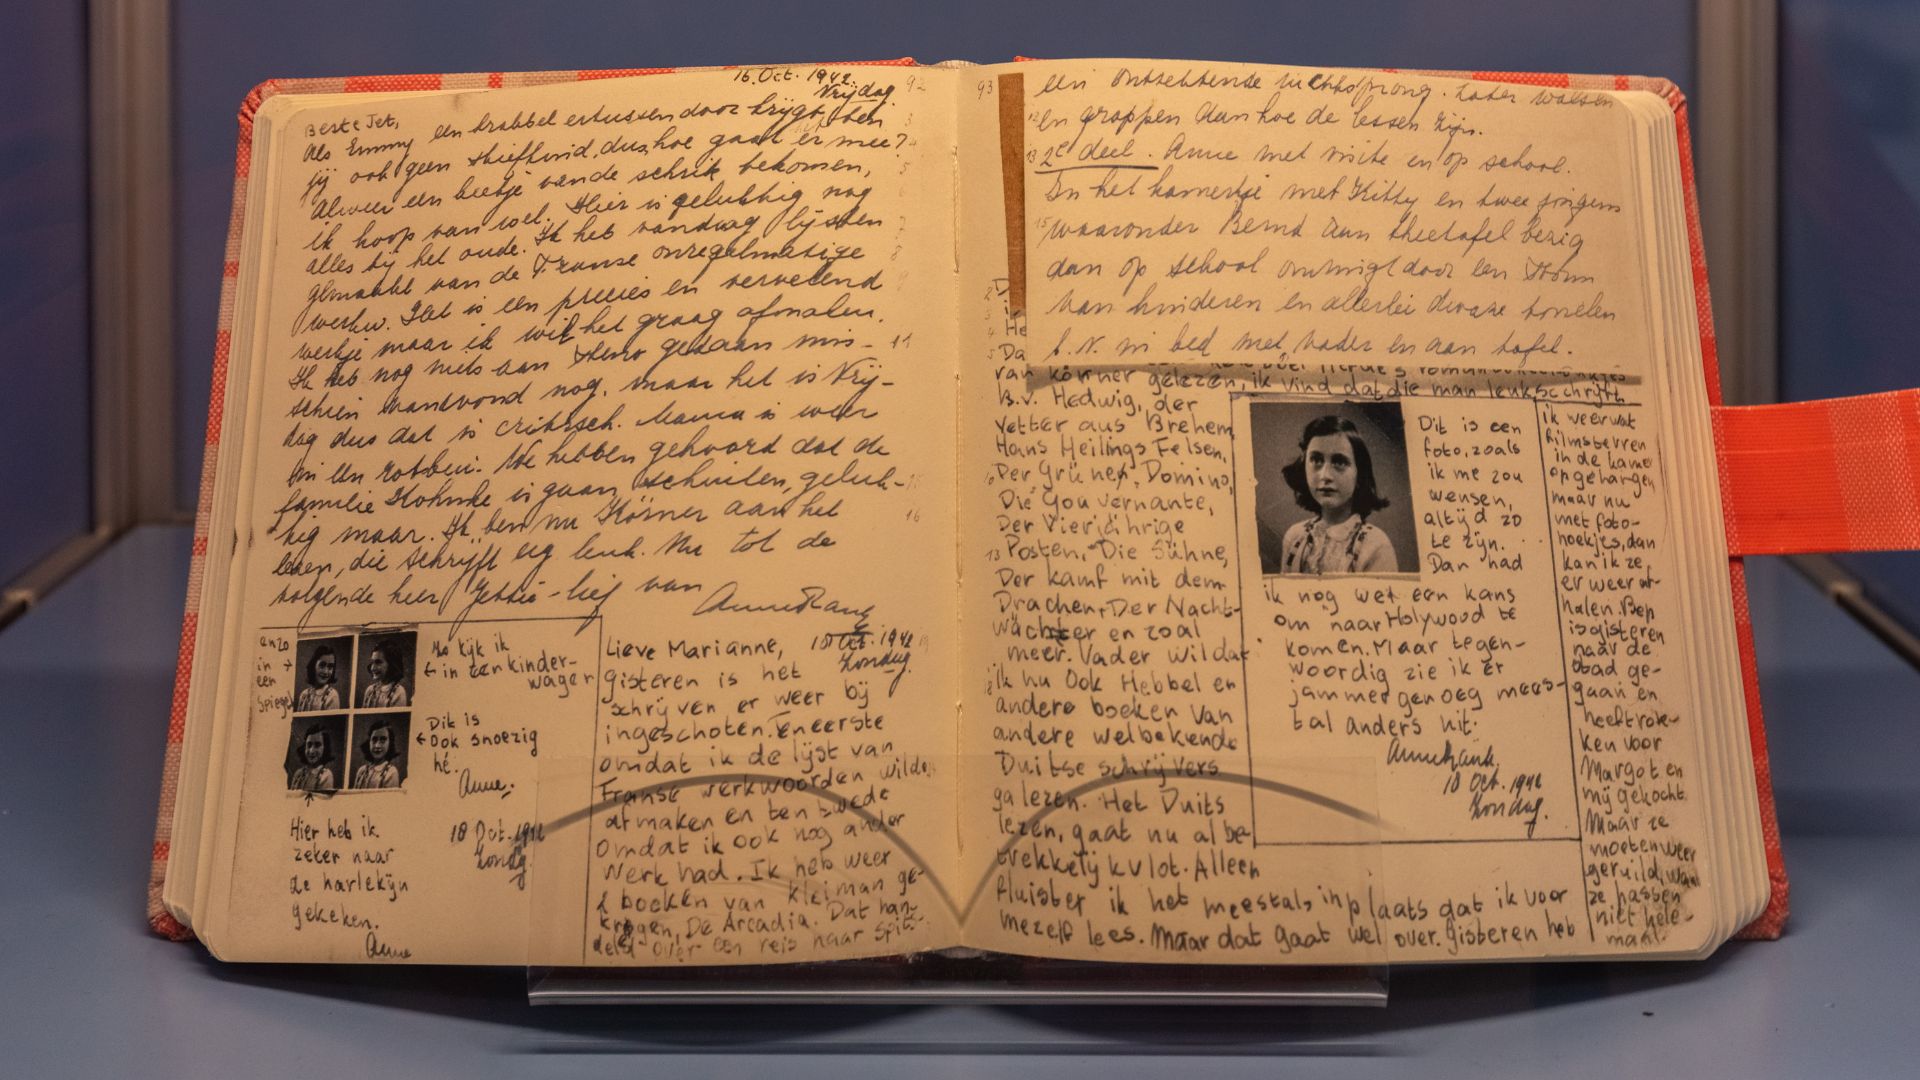 16. Oct. 1942.
Vrijdag.
92
Beste Jet,
Als Emmy een krabbel ertussen door krijgt, ben
jij ook geen stiefkind, dus hoe gaat het er mee?
Alweer een beetje van de schrik bekomen,
ik hoop van wel. Hier is gelukkig nog
alles bij het oude. Ik heb vandaag lijsten
gemaakt van de Franse onregelmatige
werkw. Het is een precies en vervelend
werkje maar ik wil het graag afmaken.
Ik heb nog niets aan Steno gedaan mis-
schien vanavond nog, maar het is Vrij-
dag dus dat is critisch. Mama is weer
in een rotbui. We hebben gehoord dat de
familie is gaan schuilen, geluk-
kig maar. Ik ben nu Körner aan het
lezen, die schrijft erg leuk. Nu tot de
volgende keer Jettie-lief van
Anne Frank
enzo
in →
een
spiegel
Zo kijk ik
← in een kinder-
wagen
Dik is
← Ook snoezig
hé.
Anne.
Hier heb ik
zeker naar
de harlekijn
gekeken.
Anne
18 Oct. 1942
Zondag.
Lieve Marianne, 18 Oct. 1942
Zondag.
gisteren is het
schrijven er weer bij
ingeschoten. Eneerste
omdat ik de lijst van
Franse werkwoorden wilde
afmaken en ten tweede
omdat ik ook nog ander
werk had. Ik heb weer
2 boeken van Kleiman ge-
kregen, De Arcadia. Dat han-
delt over een reis naar Spits-
93
een ontzettende luchtsprong. Later walsen
en grappen dan hoe de lessen zijn.
2e deel. Anne met visite en op school.
In het kamertje met Kitty en twee jongens
waaronder Bernd aan theetafel bezig
dan op school omringt door een stroom
van kinderen en allerlei dwaze tonelen
b.v. in bed met vader en aan tafel.
He
Da
van körner gelezen, ik vind dat die man leuk schrijft
B.v. Hedwig, der
Vetter aus Brehem,
Hans Heilings Felsen,
Der Grüner, Domino,
Die Gouvernante,
Der Vierjährige
Posten, Die Sühne,
Der kamf mit dem
Drachen, Der Nacht-
wächter en zoal
meer. Vader wil dat
ik nu Ook Hebbel en
andere boeken van
andere welbekende
Duitse schrijvers
ga lezen. Het Duits
lezen, gaat nu al be-
trekkelijk vlot. Alleen
fluister ik het meestals inplaats dat ik voor
mezelf lees. Maar dat gaat wel over. Gisteren heb
Dit is een
foto, zoals
ik me zou
wensen,
altijd zo
te zijn.
Dan had
ik nog wel een kans
om naar Holywood te
komen. Maar tegen-
woordig zie ik er
jammer genoeg mees-
tal anders uit.
AnneFrank.
18 Oct. 1942
Zondag.
ik weer wat
filmsterren
in de kamer
opgehangen
maar nu
met foto-
hoekjes, dan
kan ik ze
er weer af-
halen. Bep
is gisteren
naar de
stad ge-
gaan en
heeft rok-
ken voor
Margot en
mij gekocht.
Maar ze
moeten weer
geruild, want
ze passen
niet hele-
maal.